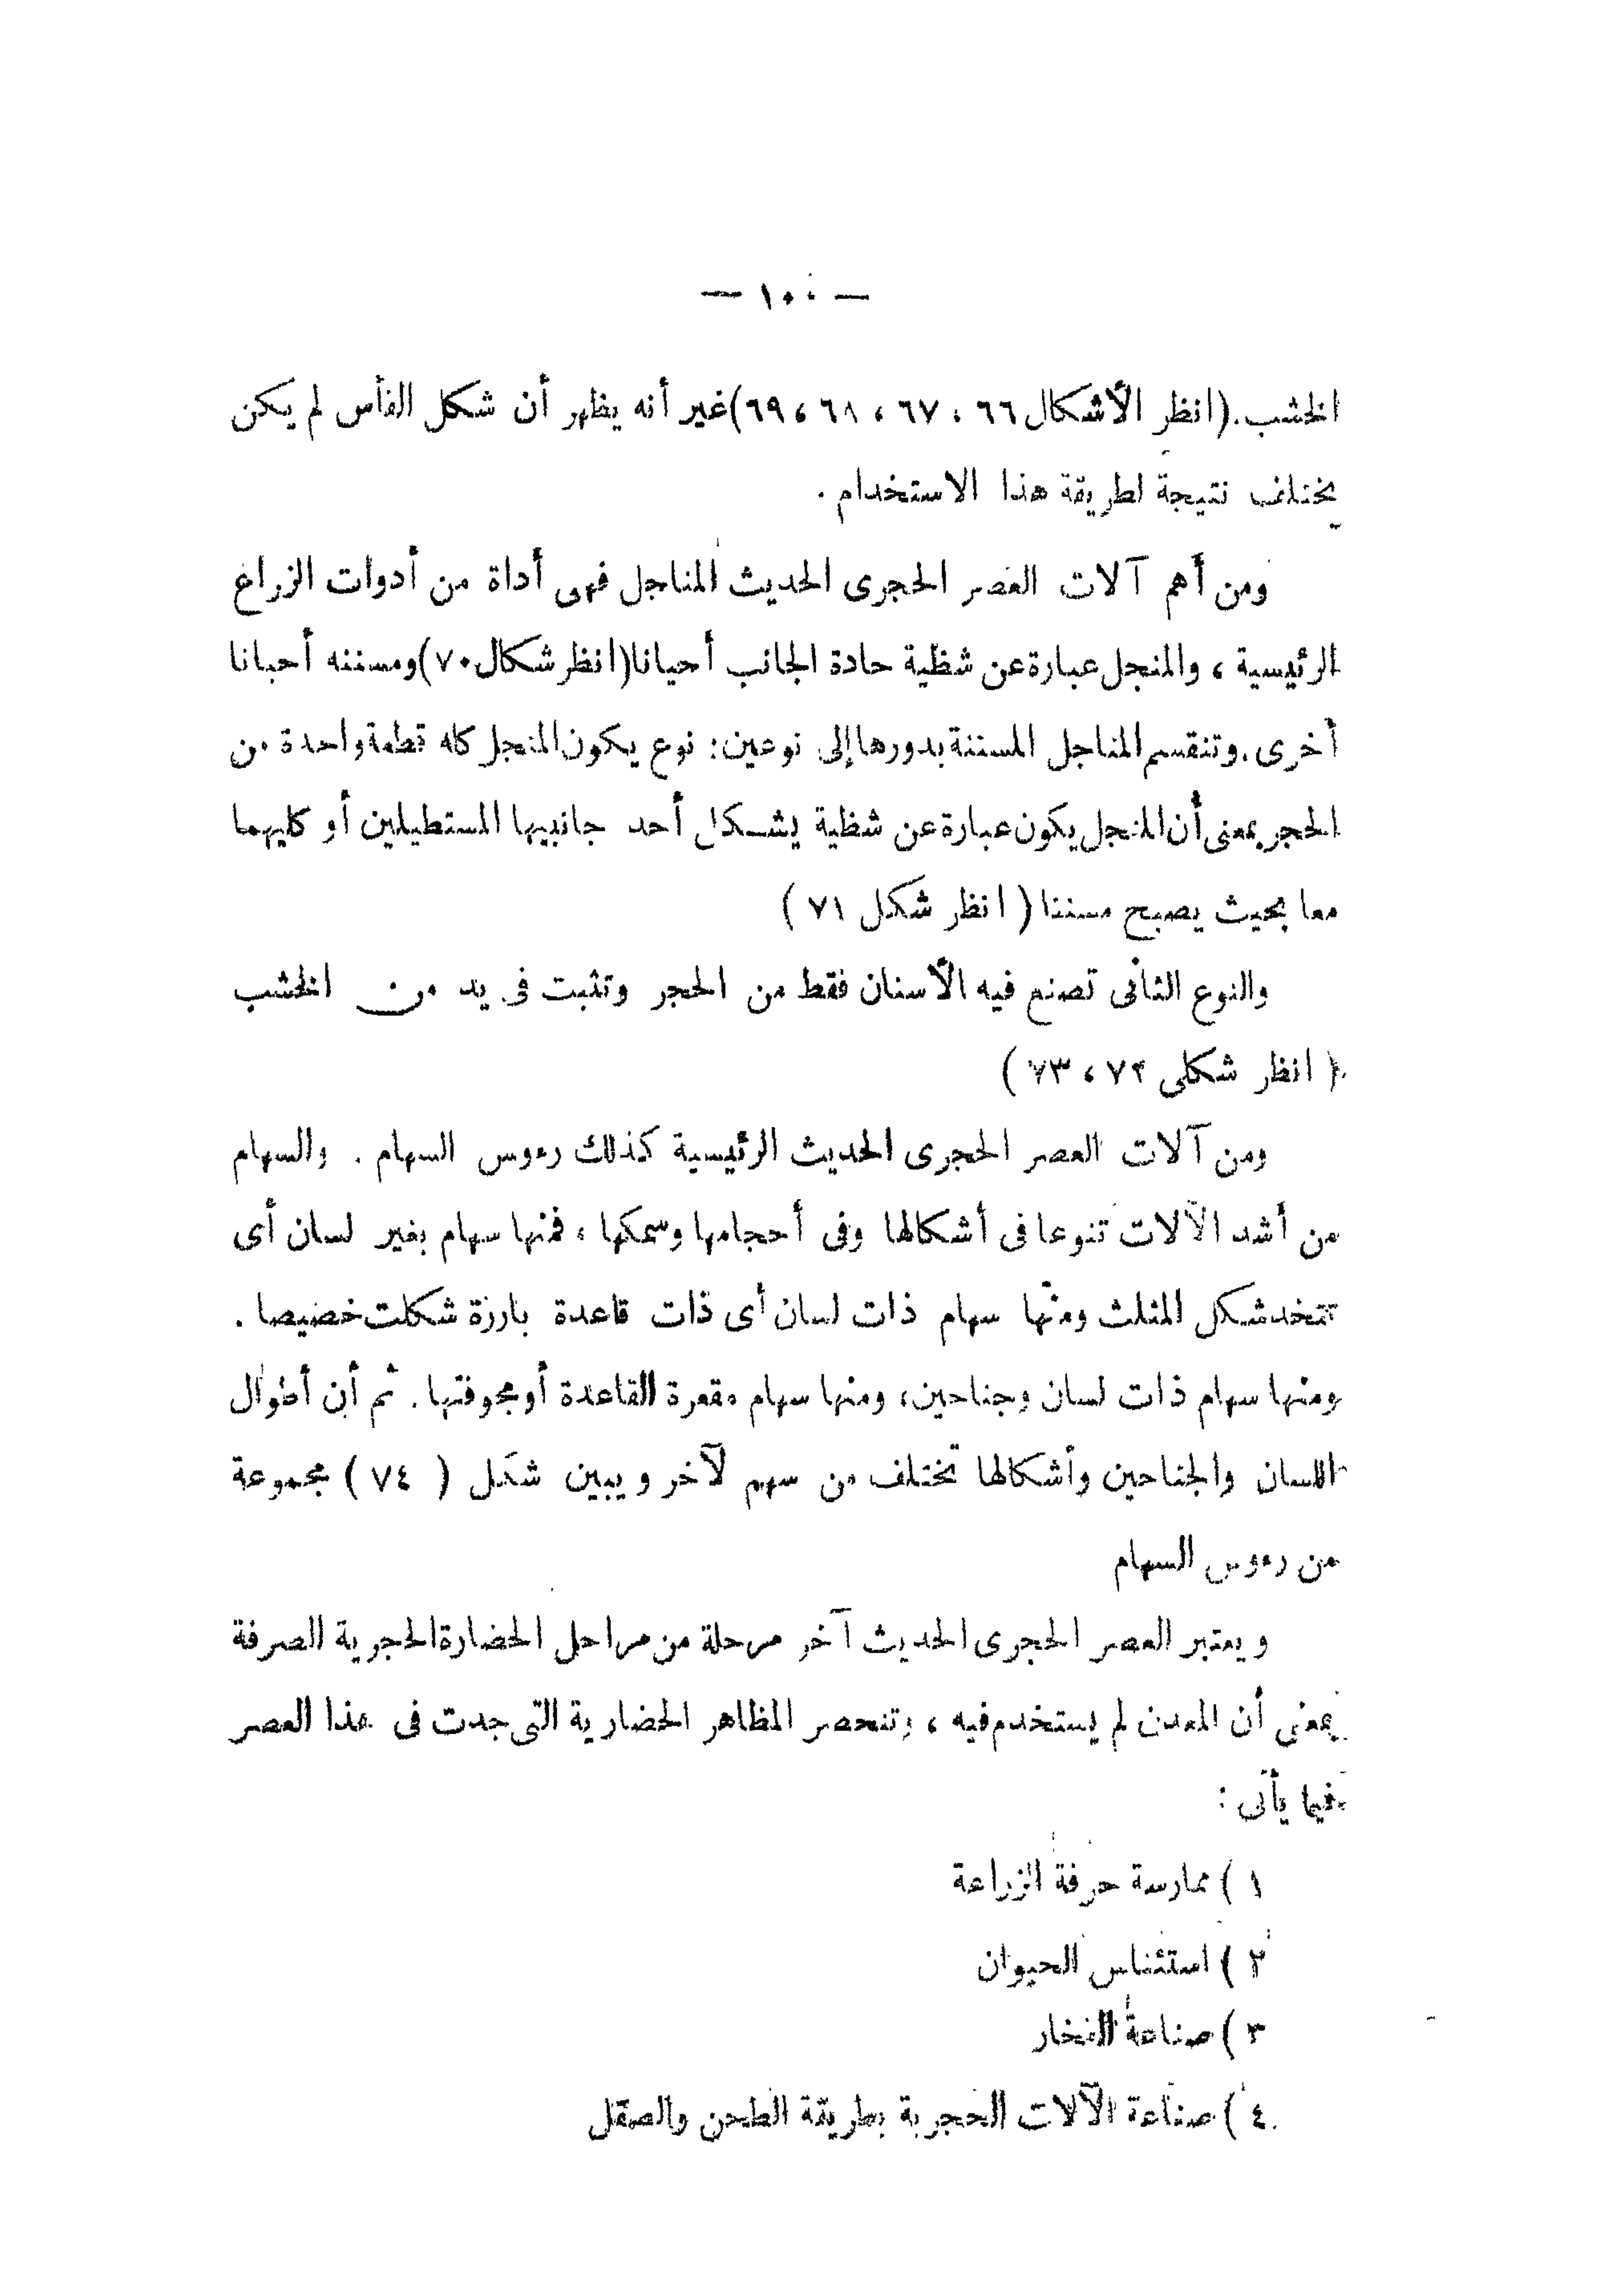 — ١٠٠ —
الخشب.(انظر الأشكال ٦٦ ، ٦٧ ، ٦٨ ، ٦٩)غير أنه يظهر أن شكل الفأس لم يكن
يختلف نتيجة لطريقة هذا الاستخدام .
ومن أهم آلات العصر الحجرى الحديث المناجل فهى أداة من أدوات الزراع
الرئيسية ، والمنجل عبارة عن شظية حادة الجانب أحيانا(انظر شكال ٧٠)ومسننه أحيانا
أخرى.وتنقسم المناجل المسننة بدورها إلى نوعين: نوع يكون المنجل كله قطعة واحدة من
الحجر بمعنى أن المنجل يكون عبارة عن شظية يشكل أحد جانبيها المستطيلين أو كليهما
معا بحيث يصبح مسننا ( انظر شكل ٧١ )
والنوع الثانى تصنع فيه الأسنان فقط من الحجر وتثبت فى يد من الخشب
( انظر شكلى ٧٢ ، ٧٣ )
ومن آلات العصر الحجرى الحديث الرئيسية كذلك رءوس السهام . والسهام
من أشد الآلات تنوعا فى أشكالها وفى أحجامها وسمكها ، فمنها سهام بغير لسان أى
تتخد شكل المثلث ومنها سهام ذات لسان أى ذات قاعدة بارزة شكلت خصيصا .
ومنها سهام ذات لسان وجناحين، ومنها سهام مقعرة القاعدة أو مجوفتها . ثم أن أطوال
اللسان والجناحين وأشكالها تختلف من سهم لآخر ويبين شكل ( ٧٤ ) مجموعة
من رءوس السهام
ويعتبر العصر الحجرى الحديث آخر مرحلة من مراحل الحضارة الحجرية الصرفة
بمعنى أن المعدن لم يستخدم فيه ، وتنحصر المظاهر الحضارية التى جدت فى هذا العصر
فيما يأتى :
١ ) ممارسة حرفة الزراعة
٢ ) استئناس الحيوان
٣ ) صناعة الفخار
٤ ) صناعة الآلات الحجرية بطريقة الطحن والصقل